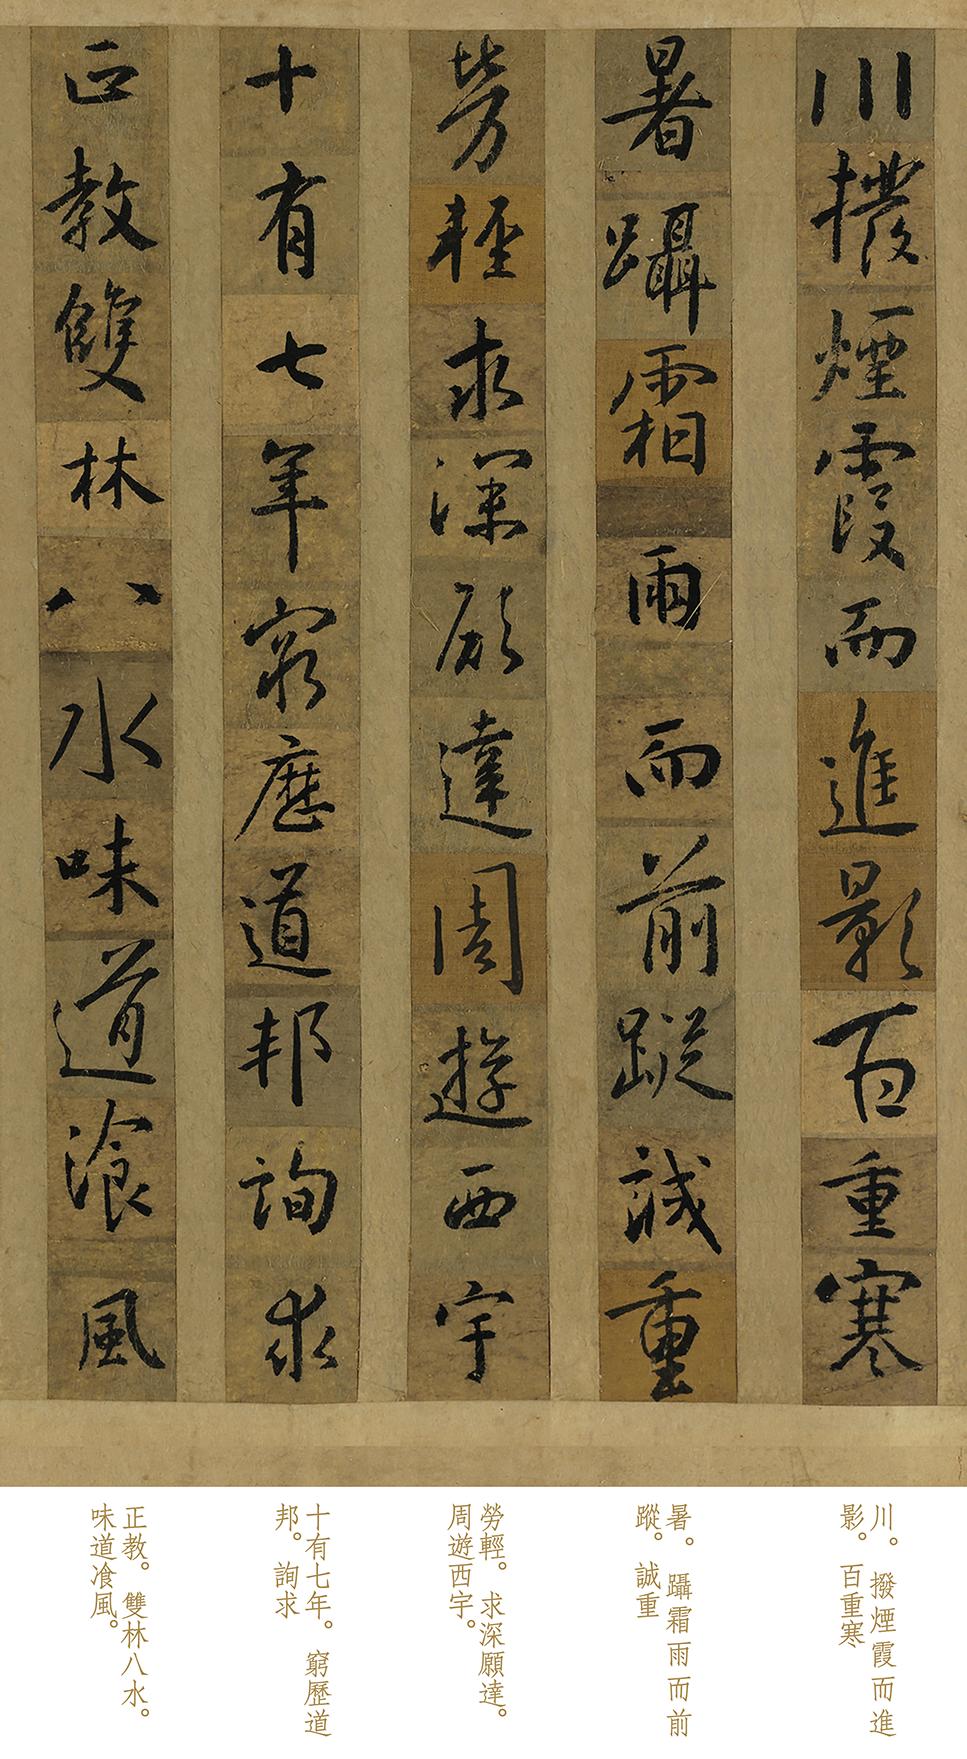 川撥煙霞而進影百重寒
暑躡霜雨而前蹤誠重
勞輕求深願達周遊西宇
十有七年窮歷道邦詢求
正教雙林八水味道飡風
川。撥煙霞而進
影。百重寒
暑。躡霜雨而前
蹤。誠重
勞輕。求深願達。
周遊西宇。
十有七年。窮歷道
邦。詢求
正教。雙林八水。
味道飡風。